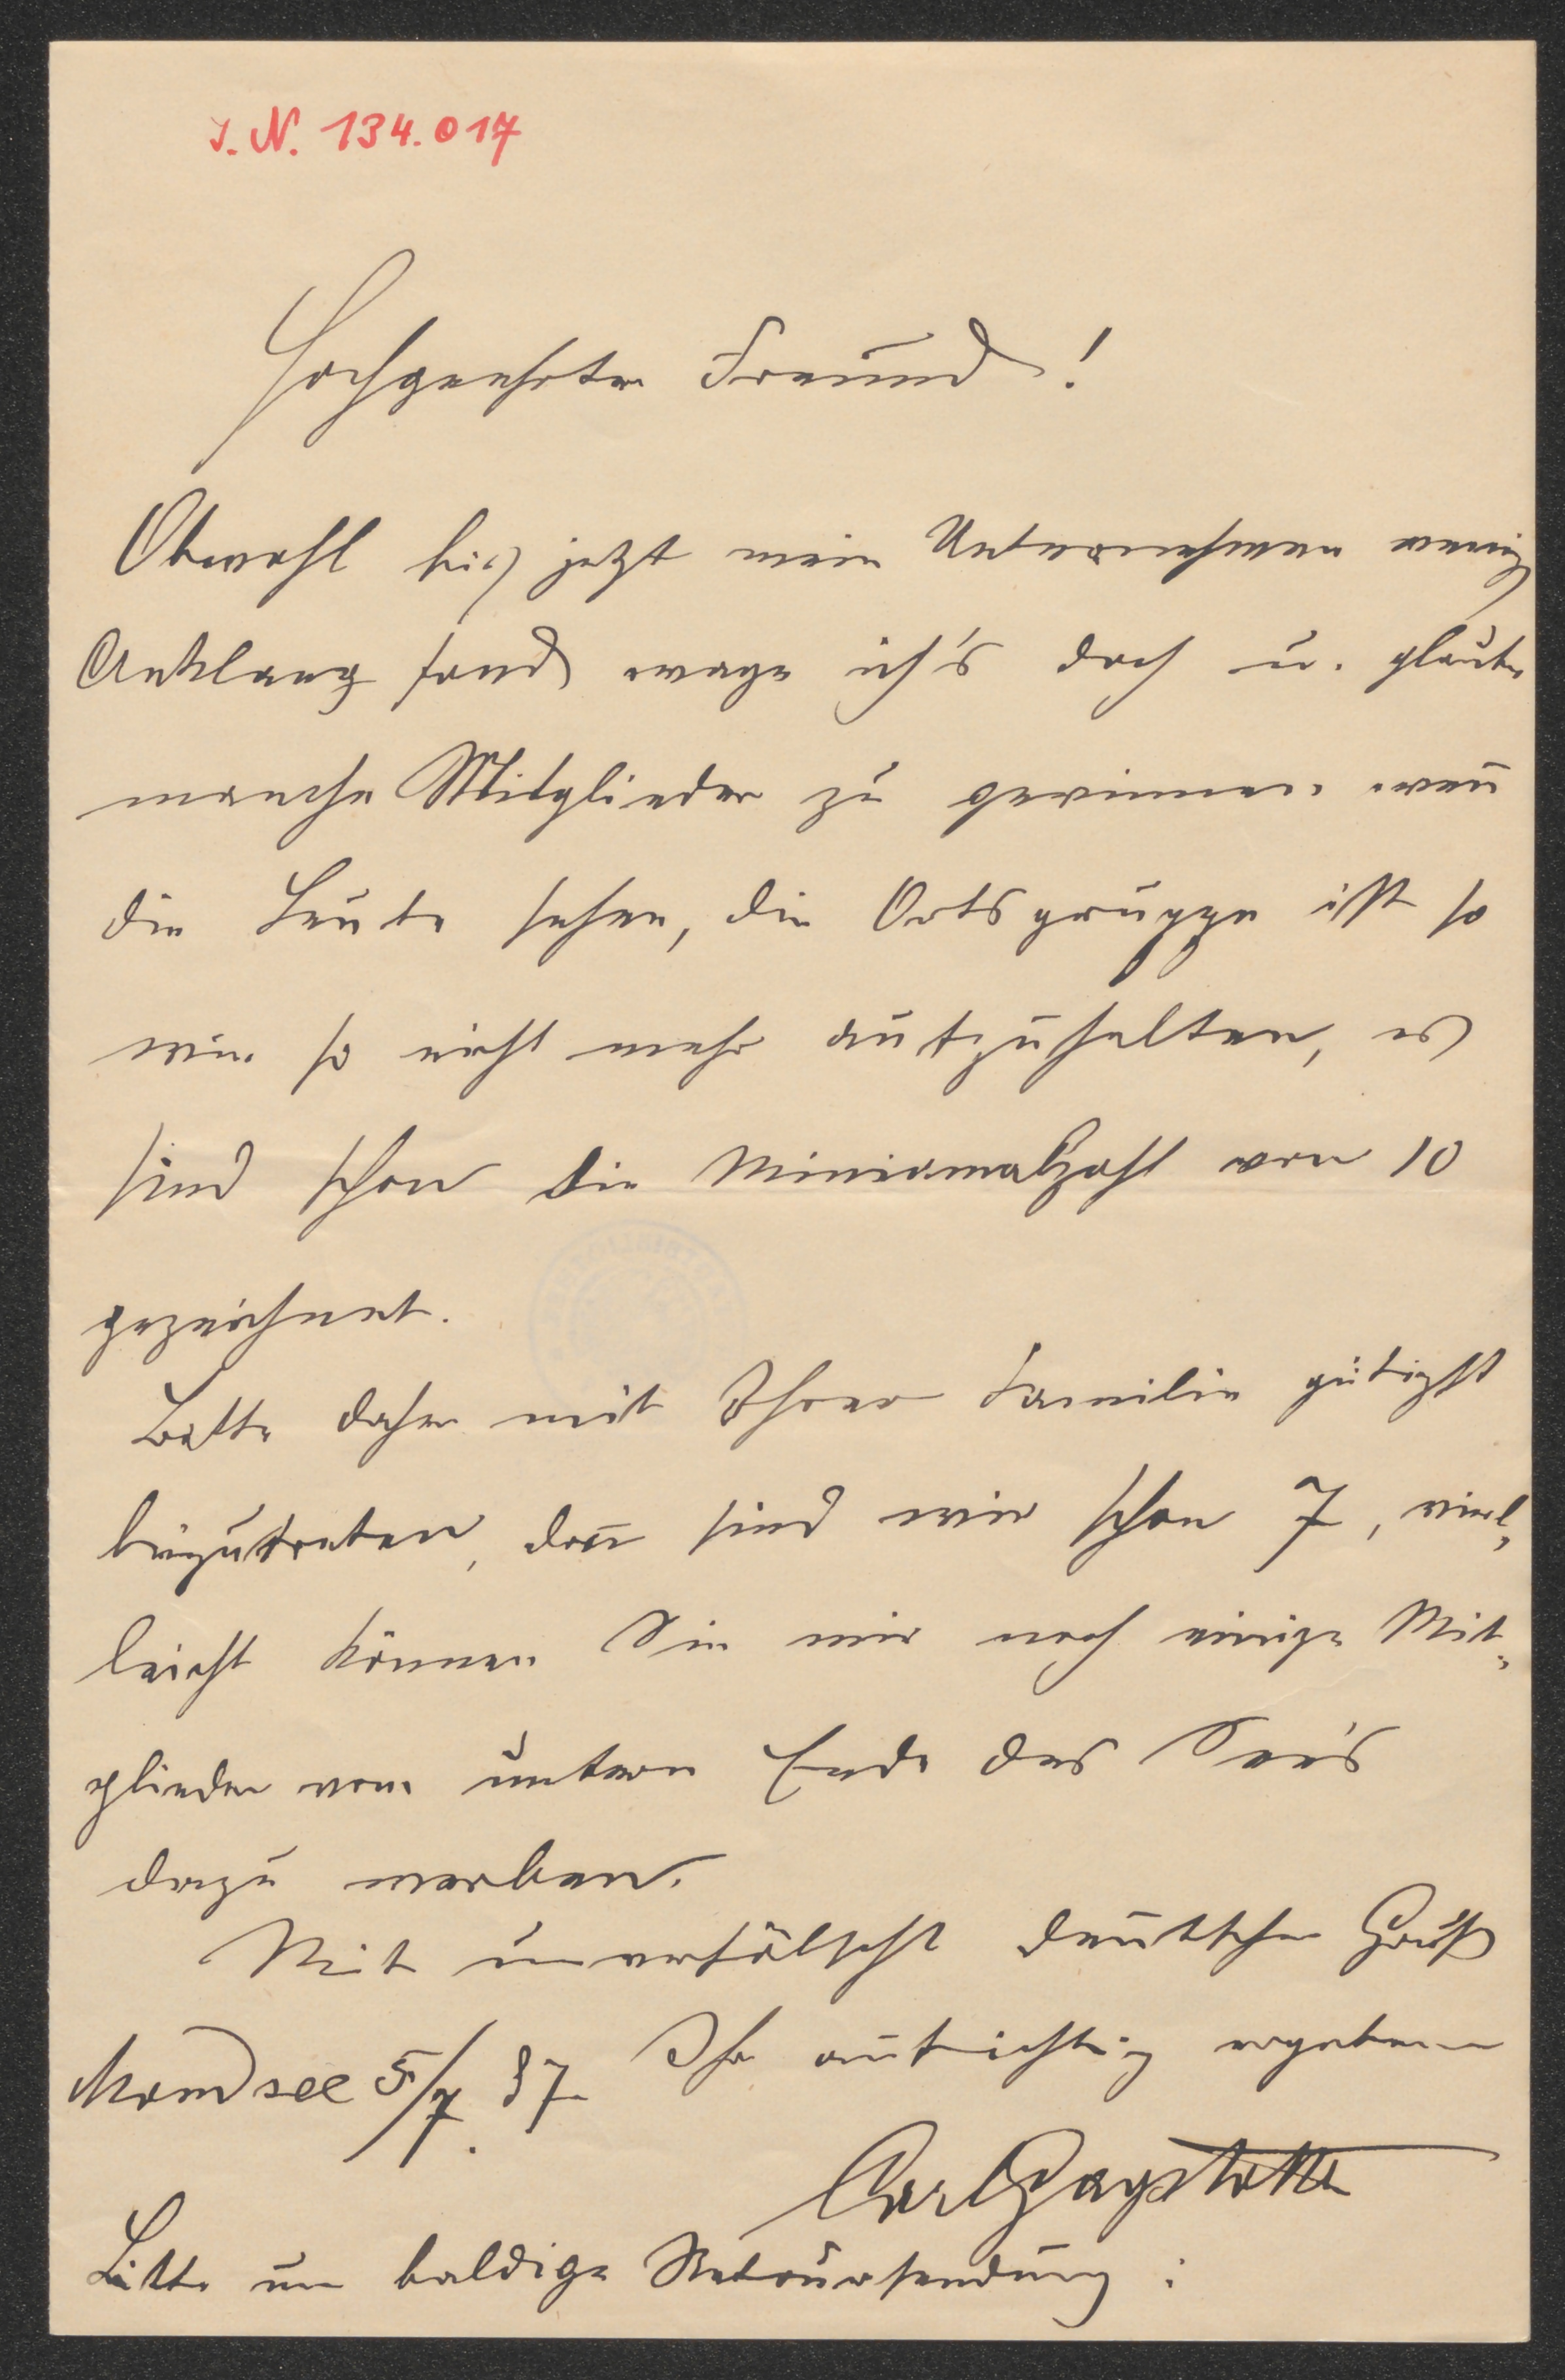 J.N. 134.017
Hochgeehrter Freund!
Obwohl bis jetzt mein Unternehmen wenig
Anklang fand wage ich's doch u. glaube
manche Mitglieder zu gewinnen wen̄
die Leute sehen, die Ortsgruppe ist so
wie so nicht mehr aufzuhalten, es
sind schon die Minimalzahl von 10
gezeichnet.
Bitte daher mit Ihrer Familie gütigst
beizutreten, dan̄ sind wir schon 7, viel-
leicht können Sie mir noch einige Mit-
glieder vom untern Ende des See's
dazu werben.
Mit unverfälscht deutschem Gruß
Mondsee 5/7. 87 Ihr aufrichtig ergebener
Carl
Bitte um baldige Retoursendung